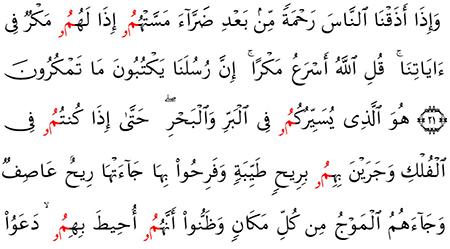 وَإِذَا أَذَقْنَا ٱلنَّاسَ رَحْمَةً مِّنۢ بَعْدِ ضَرَّآءَ مَسَّتْهُمُۥ إِذَا لَهُمُۥ مَكْرٌ فِى
ءَايَاتِنَا ۚ قُلِ ٱللَّهُ أَسْرَعُ مَكْرًا ۚ إِنَّ رُسُلَنَا يَكْتُبُونَ مَا تَمْكُرُونَ
﴿٢١﴾ هُوَ ٱلَّذِى يُسَيِّرُكُمُۥ فِى ٱلْبَرِّ وَٱلْبَحْرِ ۖ حَتَّىٰ إِذَا كُنتُمُۥ فِى
ٱلْفُلْكِ وَجَرَيْنَ بِهِمُۥ بِرِيحٍ طَيِّبَةٍ وَفَرِحُوا۟ بِهَا جَآءَتْهَا رِيحٌ عَاصِفٌ
وَجَآءَهُمُ ٱلْمَوْجُ مِن كُلِّ مَكَانٍ وَظَنُّوٓا۟ أَنَّهُمُۥ أُحِيطَ بِهِمُۥ ۙ دَعَوُا۟